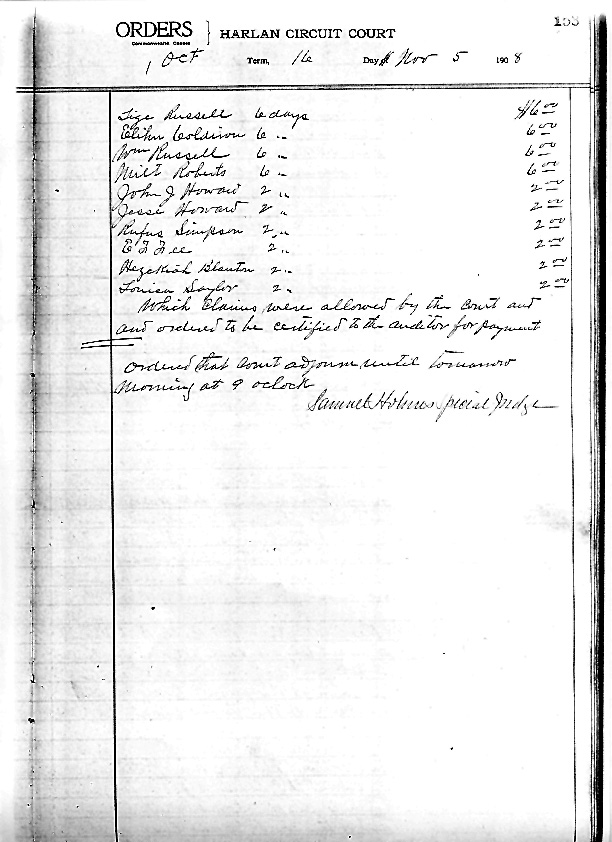 153
ORDERS } HARLAN CIRCUIT COURT
Commonwealth Cases
Oct Term, 16 Day Nov 5 1908
Tige Russell 6 days $6.00
Elihu Coldiron 6 " 6.00
Wm Russell 6 " 6.00
Milt Roberts 6 " 6.00
John J Howard 2 " 2.00
Jesse Howard 2 " 2.00
Rufus Simpson 2 " 2.00
E F Fee 2 " 2.00
Hezekiah Blanton 2 " 2.00
Louisa Saylor 2 " 2.00
Which Claims were allowed by the Court and
and ordered to be certified to the auditor for payment
Ordered that Court adjourn until tomorrow
Morning at 9 oclock
Samuel Holmes Special Judge